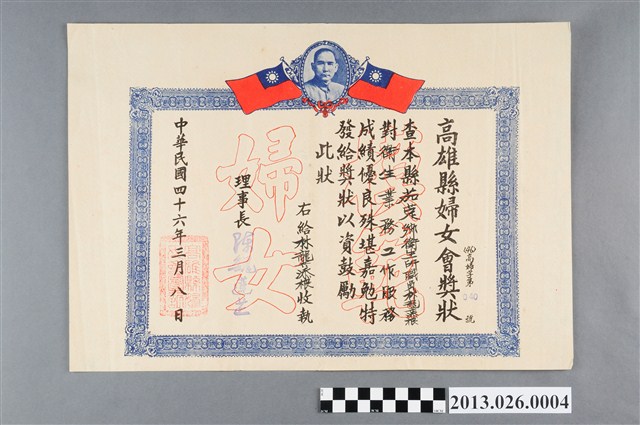 高雄縣婦女會獎狀
(46)高婦字第 號
查本縣茄萣鄉衛生所職員林龍張
對衛生業務工作服務
成績優良殊堪嘉勉特
發給獎狀以資鼓勵
此狀
右給 收執
理事長
中華民國四十六年三月八日
婦女
2013.026.0004